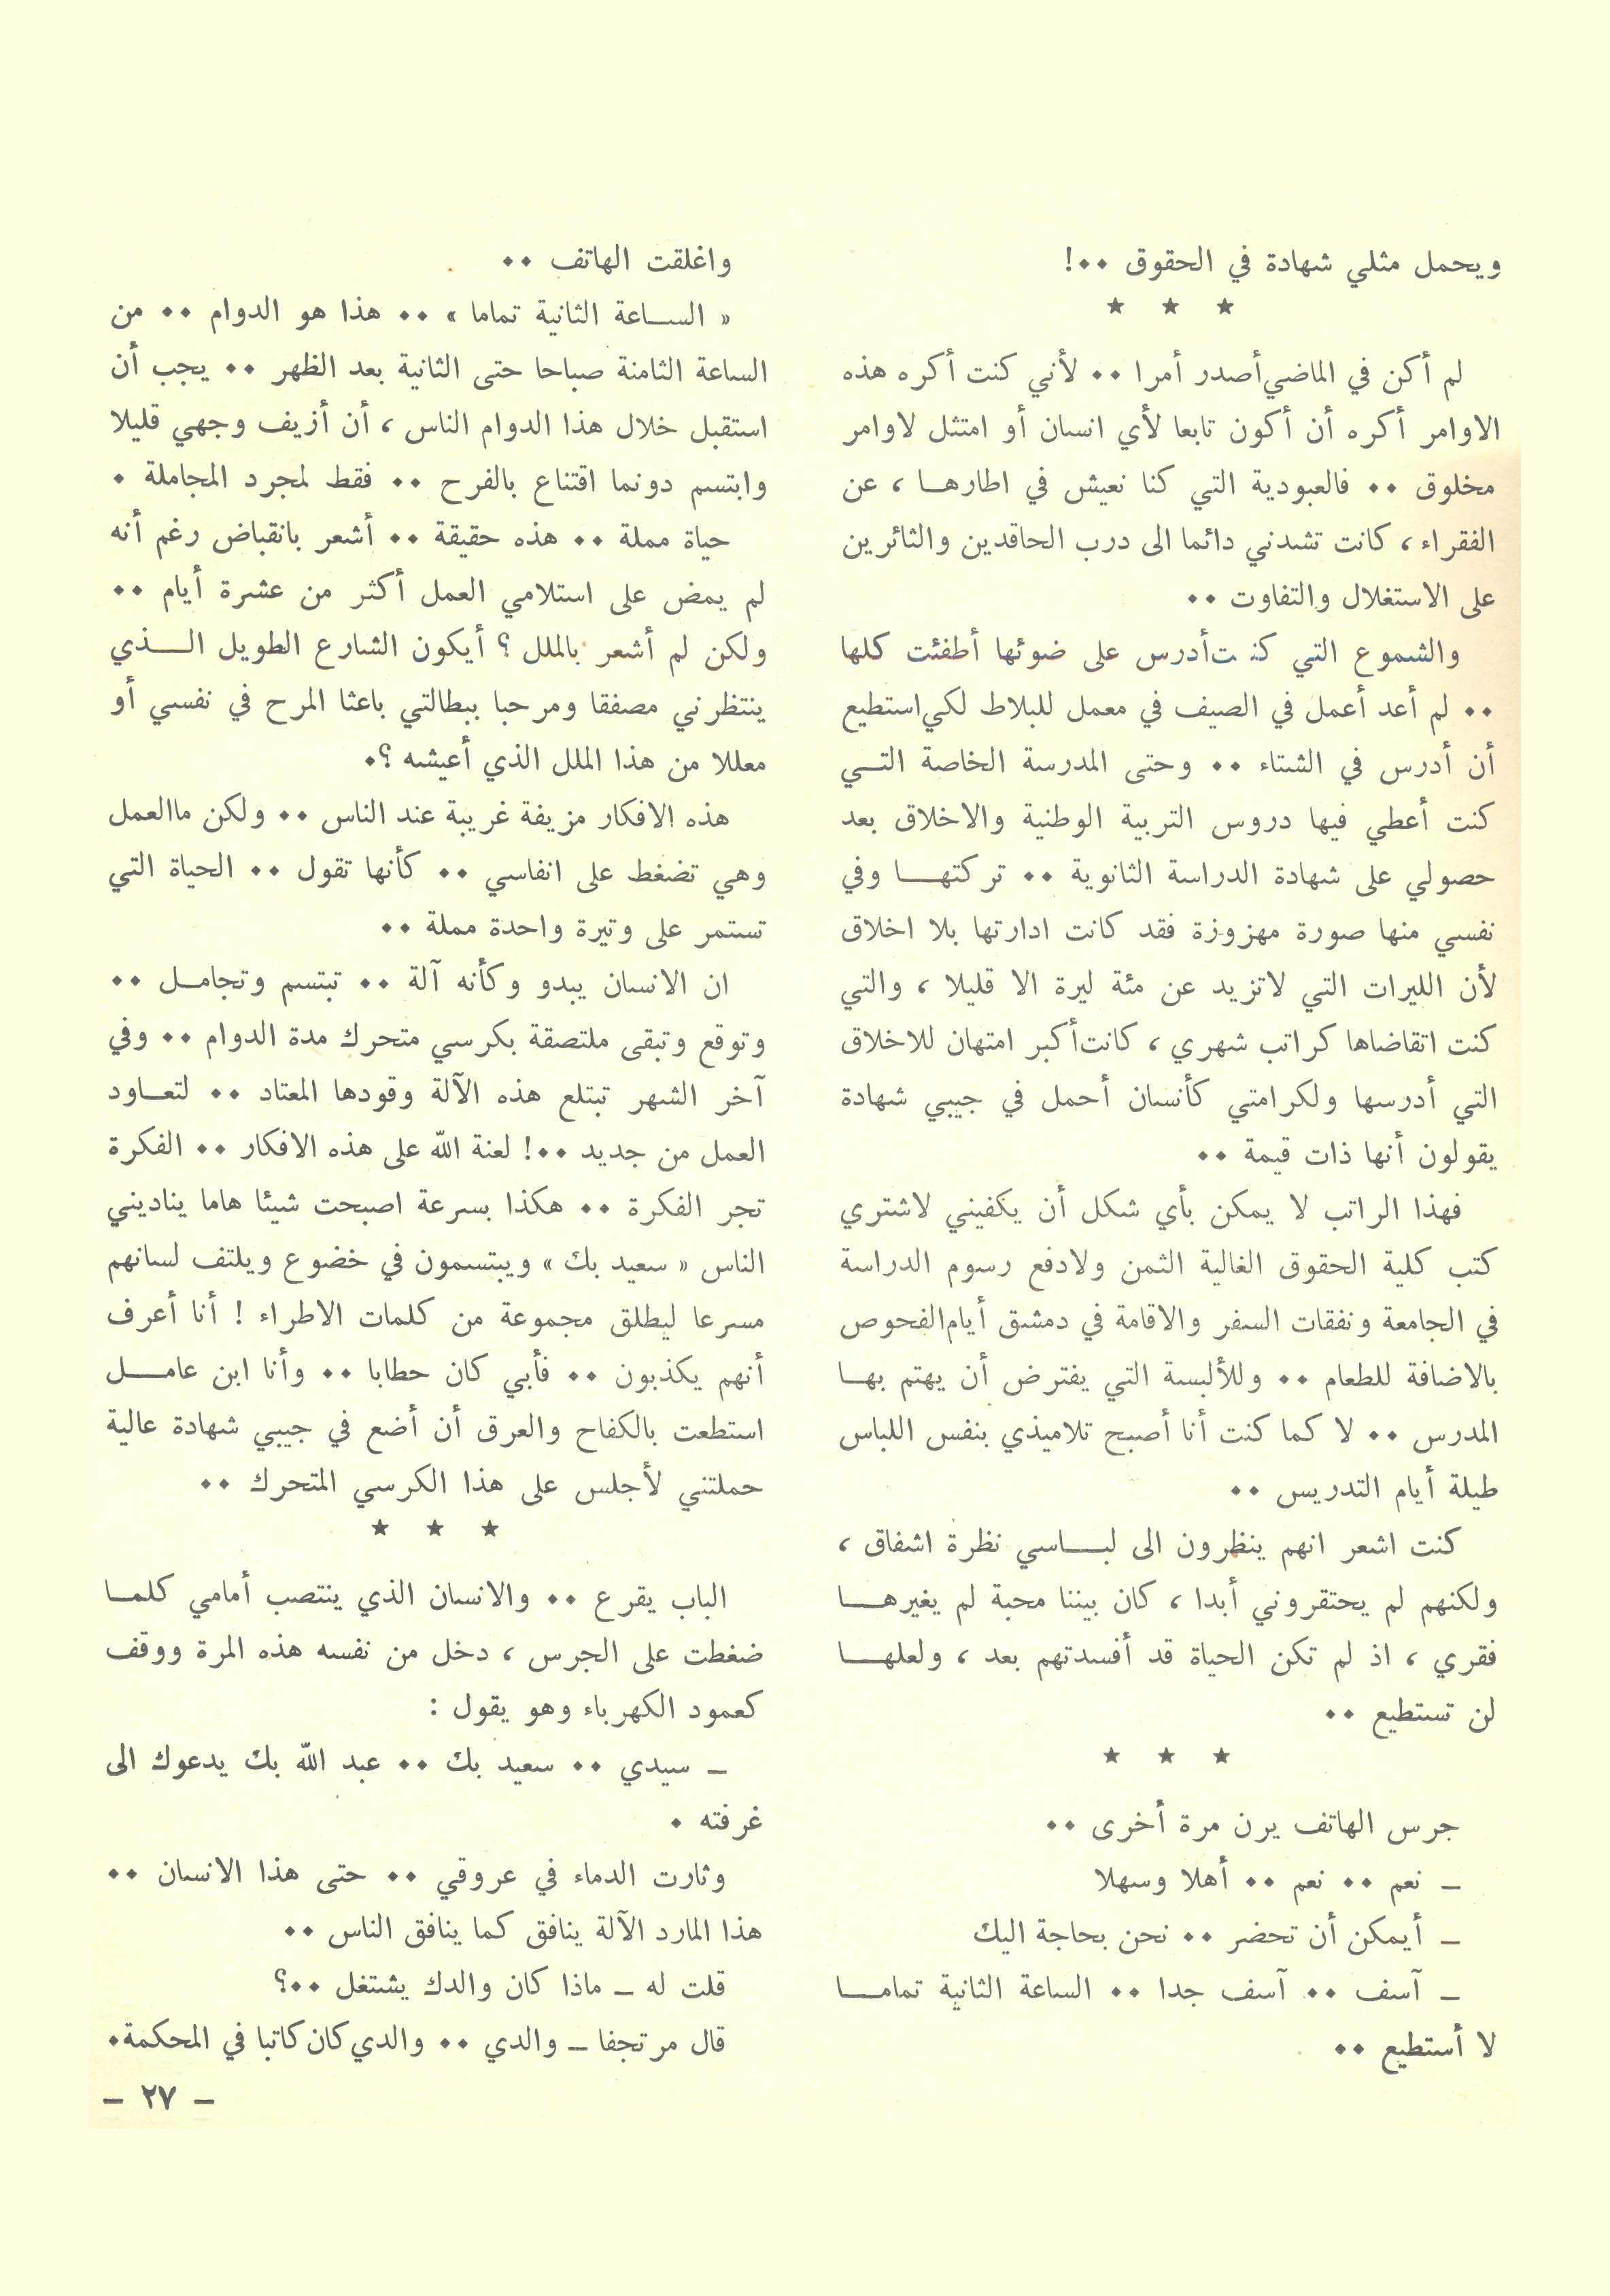 ويحمل مثلي شهادة في الحقوق ٠٠!
★ ★ ★
لم أكن في الماضي أصدر أمرا ٠٠ لأني كنت أكره هذه
الاوامر أكره أن أكون تابعا لأي انسان أو امتثل لاوامر
مخلوق ٠٠ فالعبودية التي كنا نعيش في اطارهـا ، عن
الفقراء ، كانت تشدني دائما الى درب الحاقدين والثائرين
على الاستغلال والتفاوت ٠٠
والشموع التي كنت أدرس على ضوئها أطفئت كلها
٠٠ لم أعد أعمل في الصيف في معمل للبلاط لكي استطيع
أن أدرس في الشتاء ٠٠ وحتى المدرسة الخاصة التـي
كنت أعطي فيها دروس التربية الوطنية والاخلاق بعد
حصولي على شهادة الدراسة الثانوية ٠٠ تركتهـا وفي
نفسي منها صورة مهزوزة فقد كانت ادارتها بلا اخلاق
لأن الليرات التي لاتزيد عن مئة ليرة الا قليلا ، والتي
كنت اتقاضاها كراتب شهري ، كانت أكبر امتهان للاخلاق
التي أدرسها ولكرامتي كأنسان أحمل في جيبي شهادة
يقولون أنها ذات قيمة ٠٠
فهذا الراتب لا يمكن بأي شكل أن يكفيني لاشتري
كتب كلية الحقوق الغالية الثمن ولادفع رسوم الدراسة
في الجامعة ونفقات السفر والاقامة في دمشق أيام الفحوص
بالاضافة للطعام ٠٠ وللألبسة التي يفترض أن يهتم بهـا
المدرس ٠٠ لا كما كنت أنا أصبح تلاميذي بنفس اللباس
طيلة أيام التدريس ٠٠
كنت اشعر انهم ينظرون الى لبـاسي نظرة اشفاق ،
ولكنهم لم يحتقروني أبدا ، كان بيننا محبة لم يغيرهـا
فقري ، اذ لم تكن الحياة قد أفسدتهم بعد ، ولعلهـا
لن تستطيع ٠٠
★ ★ ★
جرس الهاتف يرن مرة أخرى ٠٠
ـ نعم ٠٠ نعم ٠٠ أهلا وسهلا
ـ أيمكن أن تحضر ٠٠ نحن بحاجة اليك
ـ آسف ٠٠ آسف جدا ٠٠ الساعة الثانية تمامـا
لا أستطيع ٠٠
واغلقت الهاتف ٠٠
« السـاعة الثانية تماما » ٠٠ هذا هو الدوام ٠٠ من
الساعة الثامنة صباحا حتى الثانية بعد الظهر ٠٠ يجب أن
استقبل خلال هذا الدوام الناس ، أن أزيف وجهي قليلا
وابتسم دونما اقتناع بالفرح ٠٠ فقط لمجرد المجاملة ٠
حياة مملة ٠٠ هذه حقيقة ٠٠ أشعر بانقباض رغم أنه
لم يمض على استلامي العمل أكثر من عشرة أيام ٠٠
ولكن لم أشعر بالملل ؟ أيكون الشارع الطويل الـذي
ينتظرني مصفقا ومرحبا ببطالتي باعثا المرح في نفسي أو
معللا من هذا الملل الذي أعيشه ؟٠
هذه الافكار مزيفة غريبة عند الناس ٠٠ ولكن ماالعمل
وهي تضغط على انفاسي ٠٠ كأنها تقول ٠٠ الحياة التي
تستمر على وتيرة واحدة مملة ٠٠
ان الانسان يبدو وكأنه آلة ٠٠ تبتسم وتجامـل ٠٠
وتوقع وتبقى ملتصقة بكرسي متحرك مدة الدوام ٠٠ وفي
آخر الشهر تبتلع هذه الآلة وقودها المعتاد ٠٠ لتعـاود
العمل من جديد ٠٠! لعنة الله على هذه الافكار ٠٠ الفكرة
تجر الفكرة ٠٠ هكذا بسرعة اصبحت شيئا هاما يناديني
الناس « سعيد بك » ويبتسمون في خضوع ويلتف لسانهم
مسرعا ليطلق مجموعة من كلمات الاطراء ! أنا أعرف
أنهم يكذبون ٠٠ فأبي كان حطابا ٠٠ وأنا ابن عامـل
استطعت بالكفاح والعرق أن أضع في جيبي شهادة عالية
حملتني لأجلس على هذا الكرسي المتحرك ٠٠
★ ★ ★
الباب يقرع ٠٠ والانسان الذي ينتصب أمامي كلمـا
ضغطت على الجرس ، دخل من نفسه هذه المرة ووقف
كعمود الكهرباء وهو يقول :
ـ سيدي ٠٠ سعيد بك ٠٠ عبد الله بك يدعوك الى
غرفته ٠
وثارت الدماء في عروقي ٠٠ حتى هذا الانسان ٠٠
هذا المارد الآلة ينافق كما ينافق الناس ٠٠
قلت له ـ ماذا كان والدك يشتغل ٠٠؟
قال مرتجفا ـ والدي ٠٠ والدي كان كاتبا في المحكمة٠
– ٢٧ –